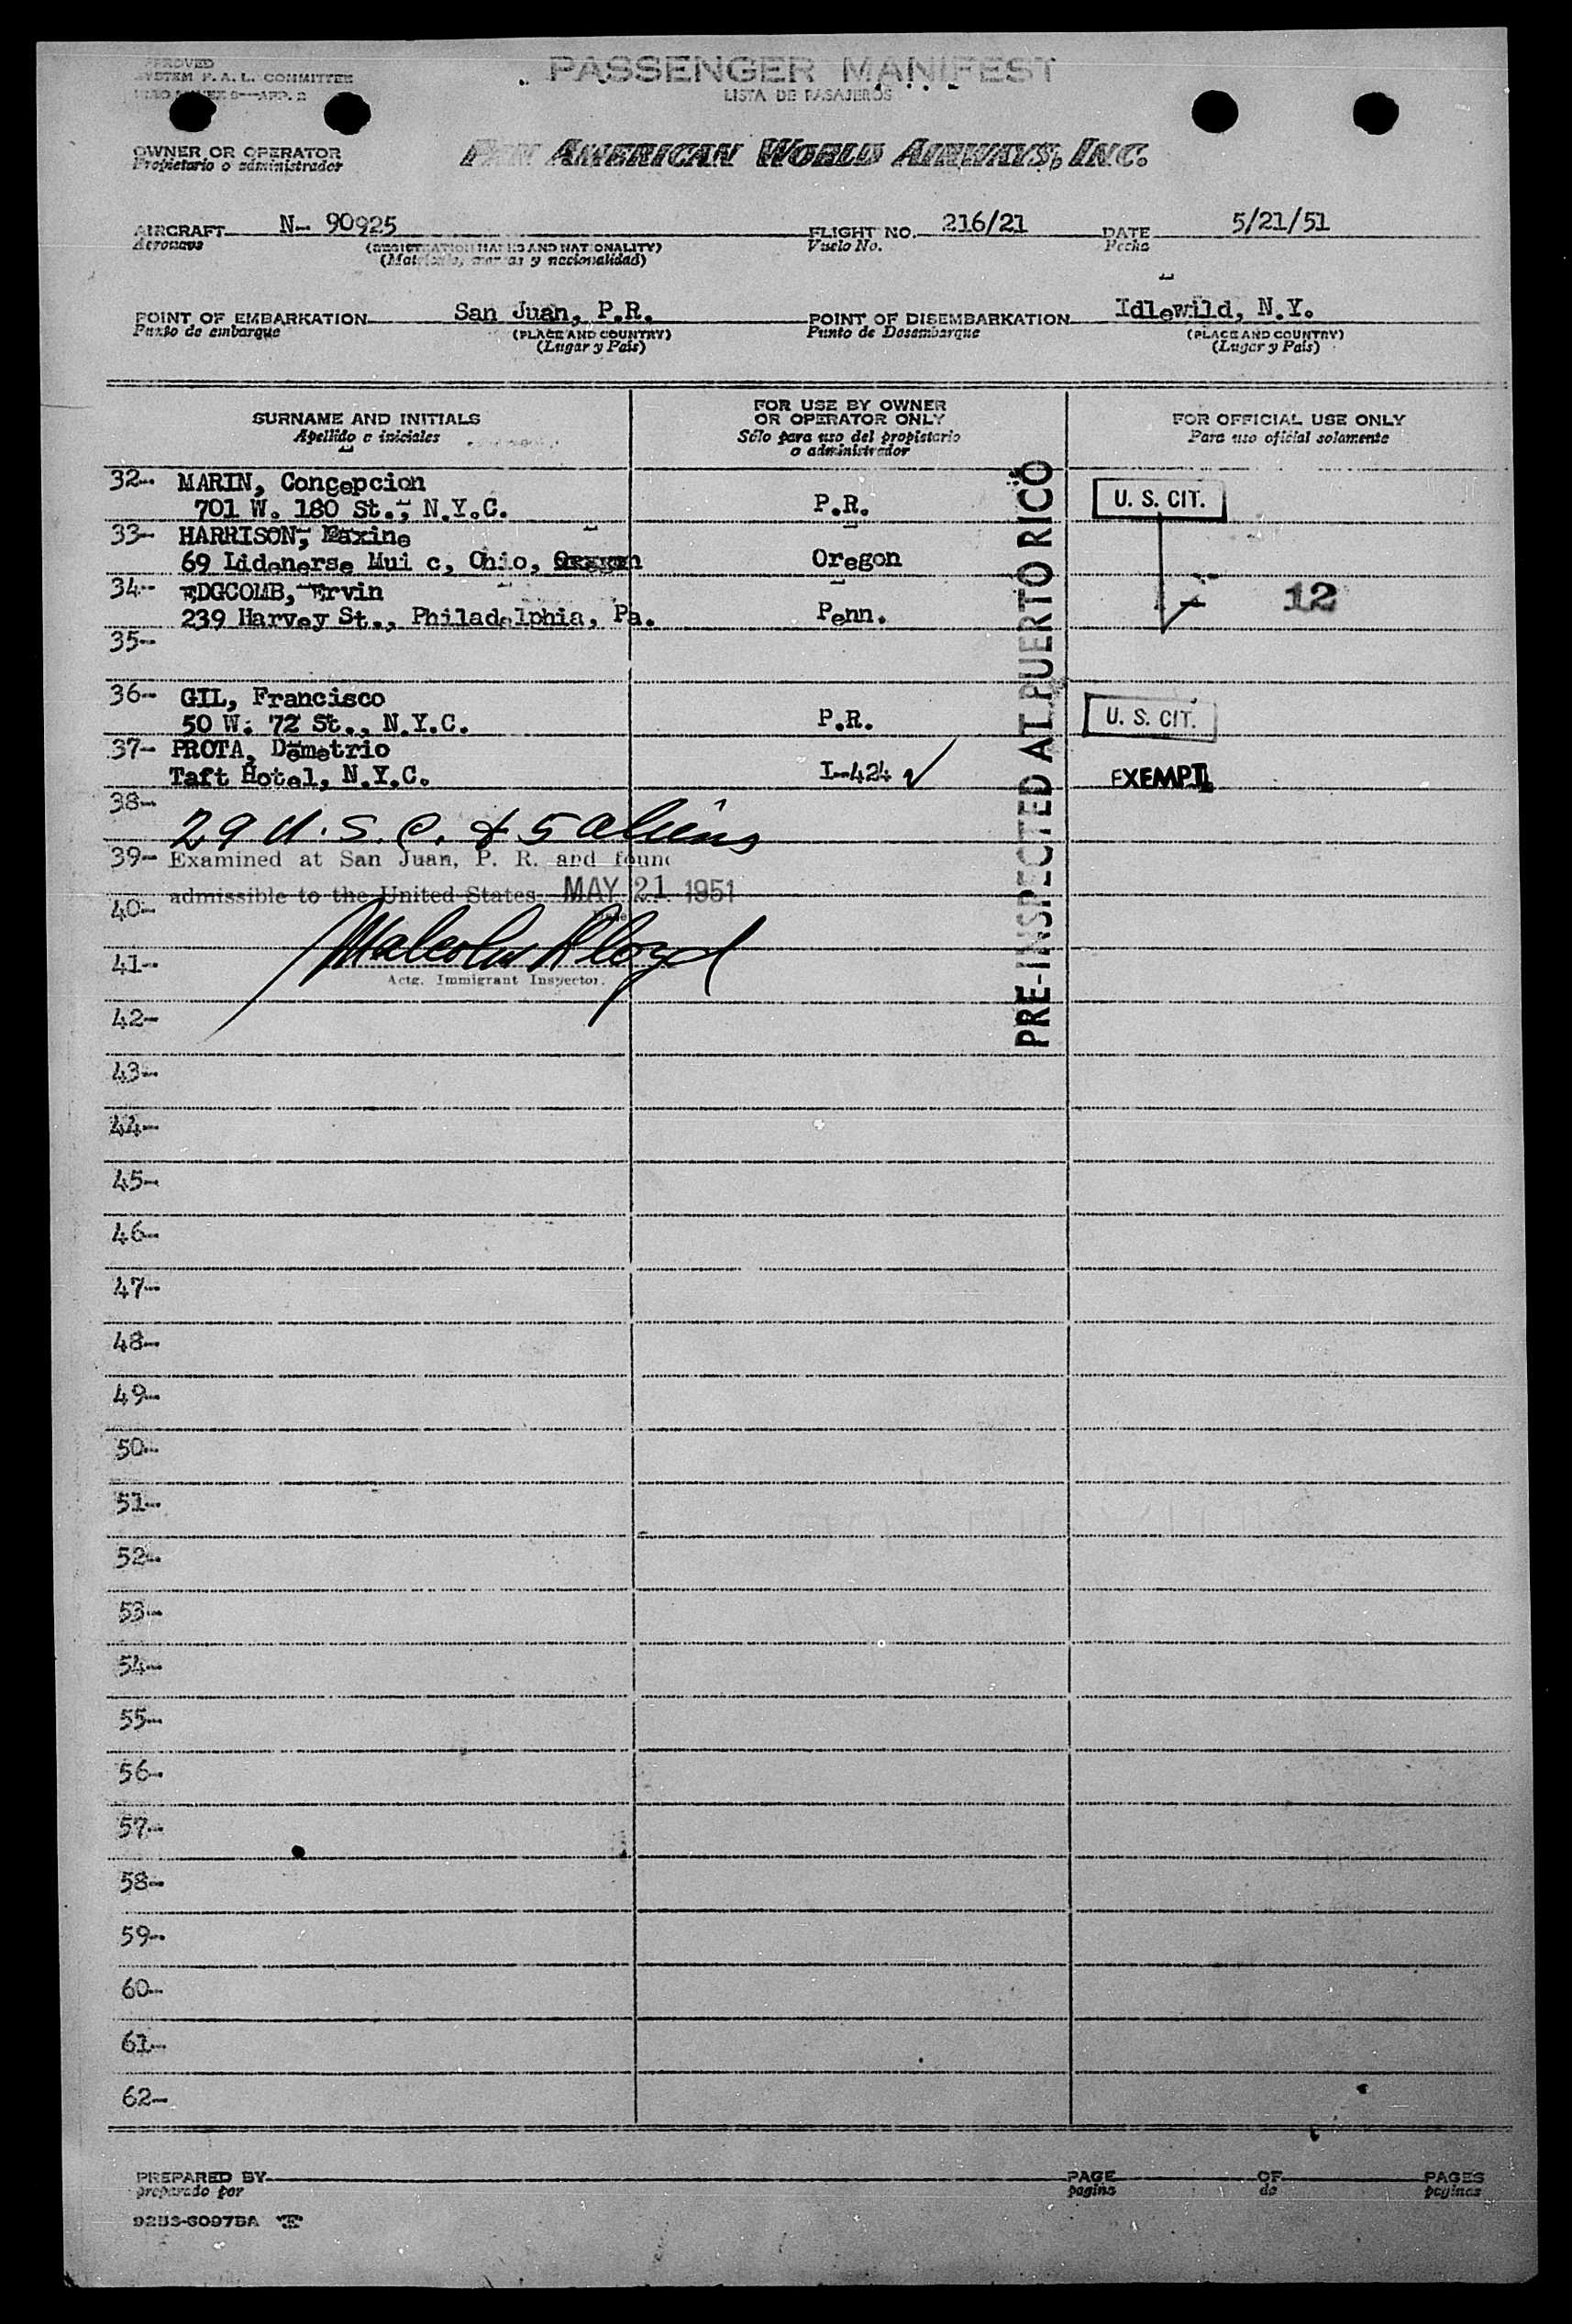 APPROVED
SYSTEM F.A.L. COMMITTEE
ANNEX 9—APP. 2
PASSENGER MANIFEST
LISTA DE PASAJEROS
OWNER OR OPERATOR
Propietario o administrador
PAN AMERICAN WORLD AIRWAYS, INC.
AIRCRAFT N- 90925 FLIGHT NO. 216/21 DATE 5/21/51
Aeronave (REGISTRATION MARKS AND NATIONALITY) Vuelo No. Fecha
(Matrícula, marcas y nacionalidad)
POINT OF EMBARKATION San Juan, P.R. POINT OF DISEMBARKATION Idlewild, N.Y.
Punto de embarque (PLACE AND COUNTRY) Punto de Desembarque (PLACE AND COUNTRY)
(Lugar y País) (Lugar y País)
SURNAME AND INITIALS FOR USE BY OWNER OR OPERATOR ONLY FOR OFFICIAL USE ONLY
Apellido e iniciales Sólo para uso del propietario o administrador Para uso oficial solamente
32- MARIN, Concepcion
701 W. 180 St., N.Y.C. P.R. U. S. CIT.
33- HARRISON, Maxine
69 Lidenerse Mui c, Ohio, Oregon Oregon
34- EDGCOMB, Ervin 12
239 Harvey St., Philadelphia, Pa. Penn.
35-
36- GIL, Francisco
50 W. 72 St., N.Y.C. P.R. U. S. CIT.
37- PROTA, Demetrio
Taft Hotel, N.Y.C. I-424 ✓ EXEMPT
38- 29 U.S.C. & 5 aliens
39- Examined at San Juan, P. R. and found
admissible to the United States MAY 21 1951
40- Date
Malcolm Lloyd
41- Actg. Immigrant Inspector.
PRE-INSPECTED AT PUERTO RICO
42-
43-
44-
45-
46-
47-
48-
49-
50-
51-
52-
53-
54-
55-
56-
57-
58-
59-
60-
61-
62-
PREPARED BY PAGE OF PAGES
preparado por pagina de paginas